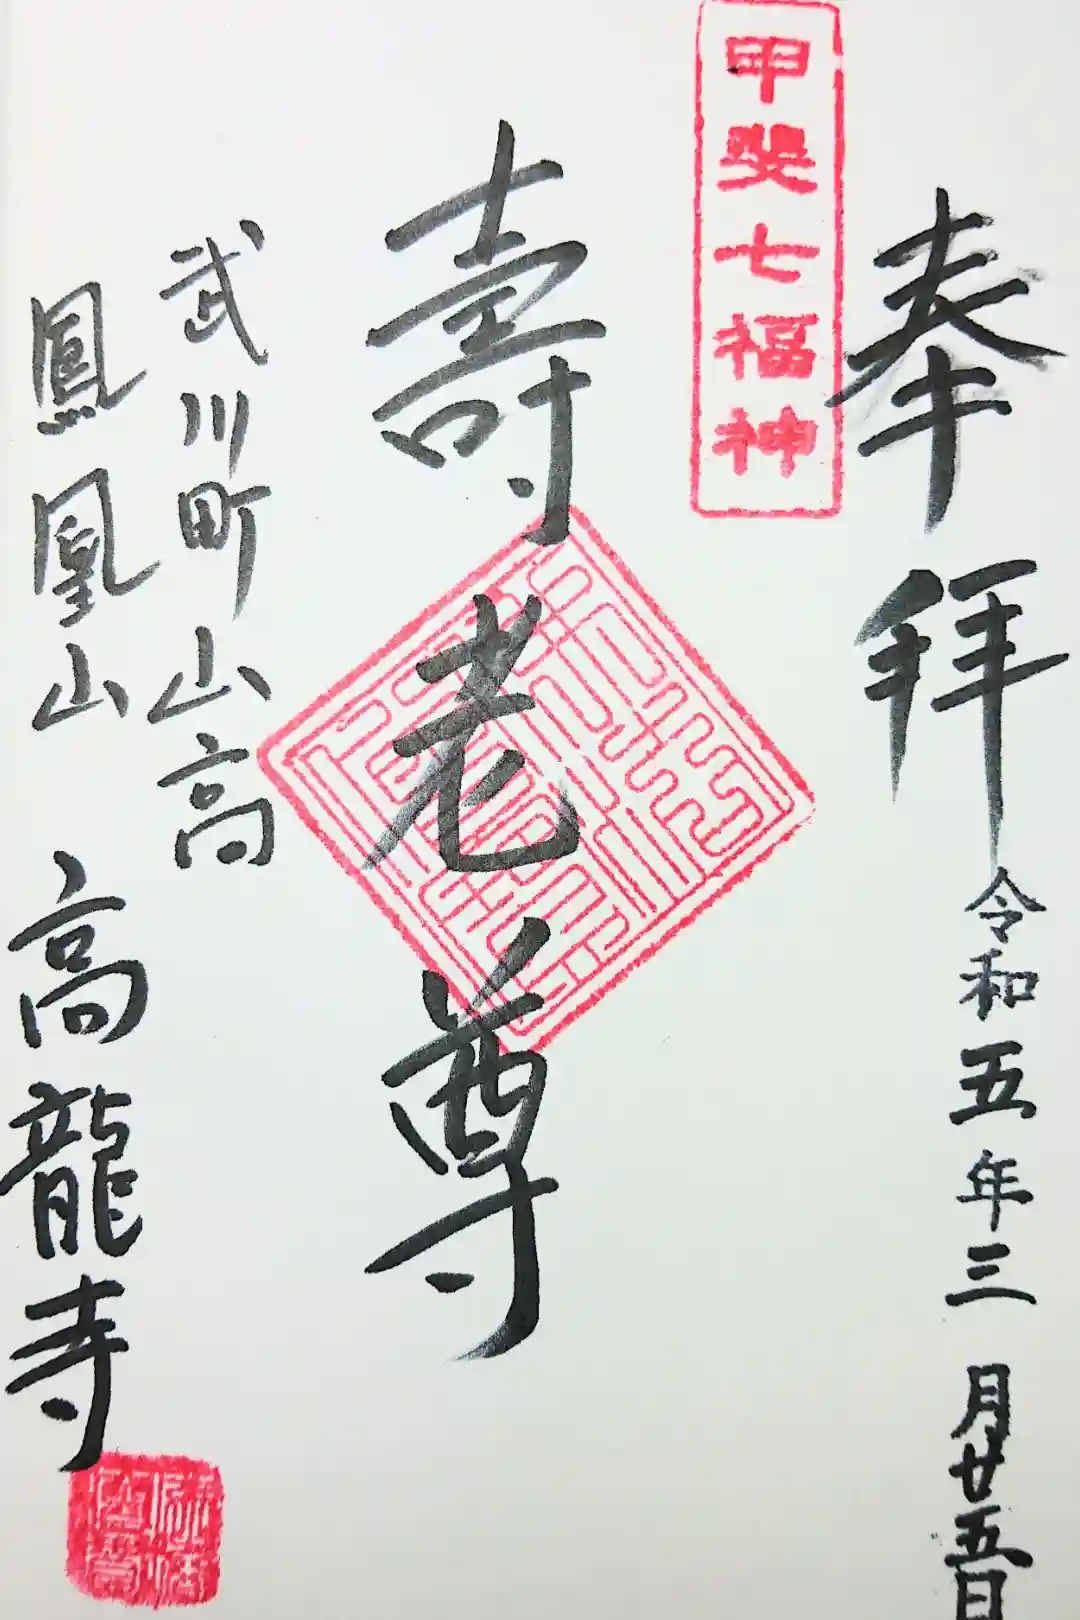 奉拜
令和五年三月廿五日
甲斐七福神
壽老尊
武川町山高
鳳凰山
高龍寺